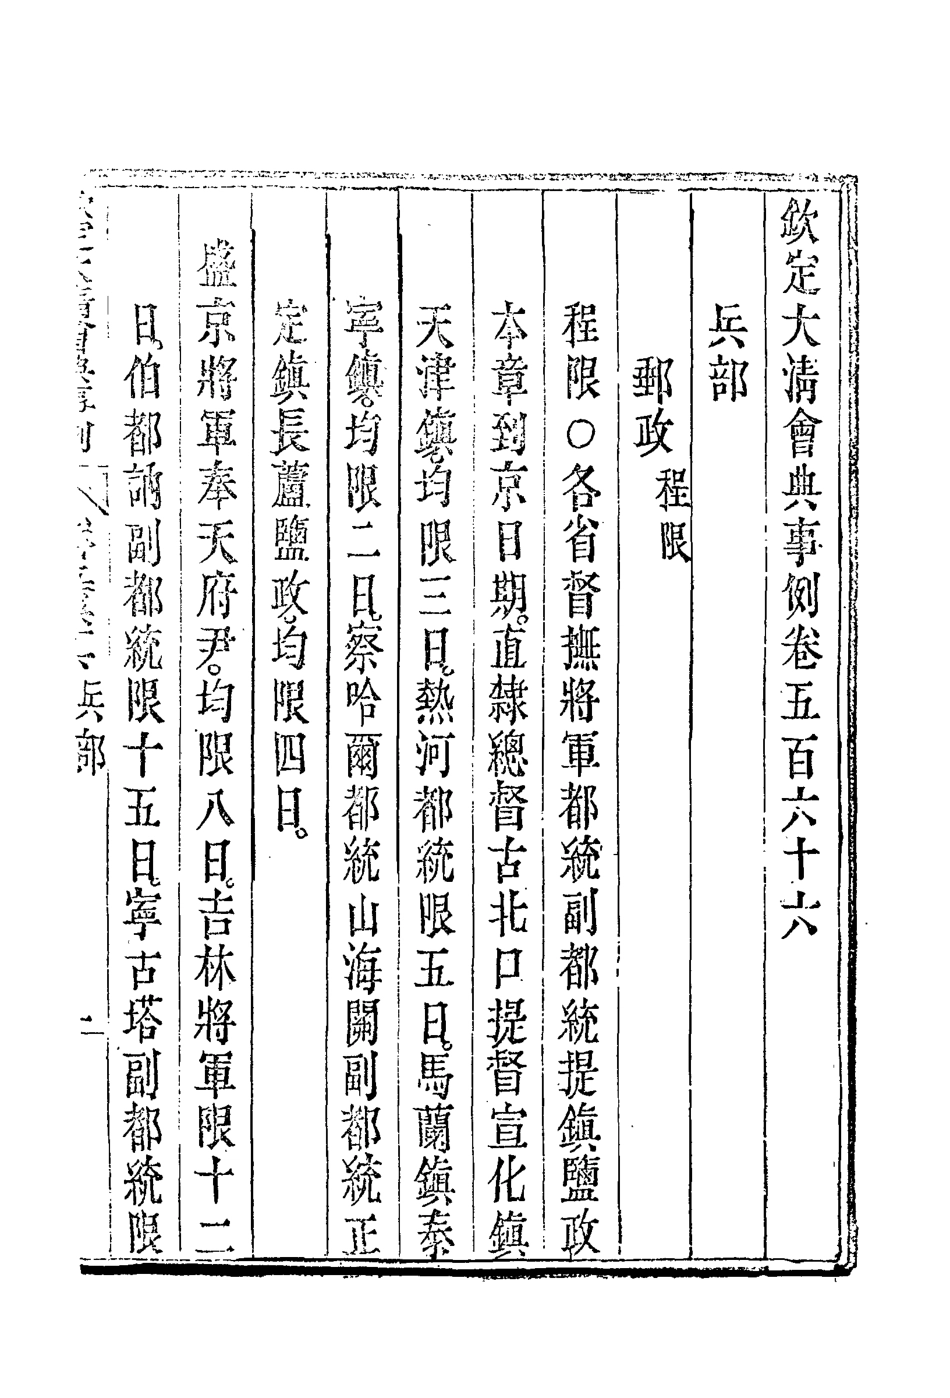 欽定大清會典事例卷五百六十六
兵部
郵政程限
程限○各省督撫將軍都統副都統提鎮鹽政
本章到京日期。直隸總督古北口提督宣化鎮
天津鎮。均限三日。熱河都統限五日。馬蘭鎮泰
寧鎮。均限二日。察哈爾都統山海關副都統正
定鎮長蘆鹽政。均限四日。
盛京將軍奉天府尹。均限八日。吉林將軍限十二
日。伯都訥副都統限十五日。寧古塔副都統限
兵部